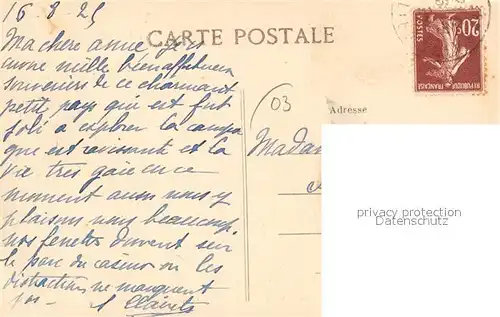 16 8 25
Ma chère amie je vs
envoie mille bien affectueux
souvenirs de ce charmant
petit pays qui est fort
joli a explorer la campagne
que est ravissante et la
vie très gaie en ce
moment aussi nous y
plaisons nous beaucoup.
nos fenetres ouvrent sur
le parc du casino ou les
distractions ne manquent
pas
CARTE POSTALE
20c
POSTES
REPUBLIQUE FRANÇAISE
03
Adresse
Madam
privacy protection
Datenschutz